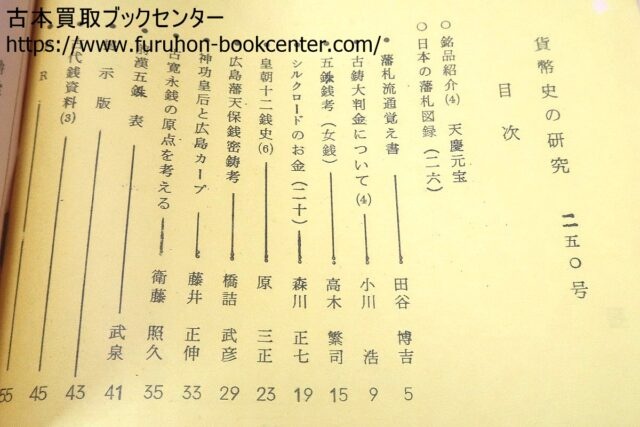 古本買取ブックセンター
https://www.furuhon-bookcenter.com/
貨幣史の研究 二五〇号
目次
○銘品紹介(4) 天慶元宝
○日本の藩札図録(二六)
●藩札流通覚え書 田谷 博吉 5
古鋳大判金について(4) 小川 浩 9
五銖銭考(女銭) 高木 繁司 15
シルクロードのお金(二十) 森川 正七 19
皇朝十二銭史(6) 原 三正 23
広島藩天保銭密鋳考 橋詰 武彦 29
神功皇后と広島カープ 藤井 正伸 33
古寛永銭の原点を考える 衛藤 照久 35
漢五銖表 武泉 41
示版 43
代銭資料(3) 45
R
55